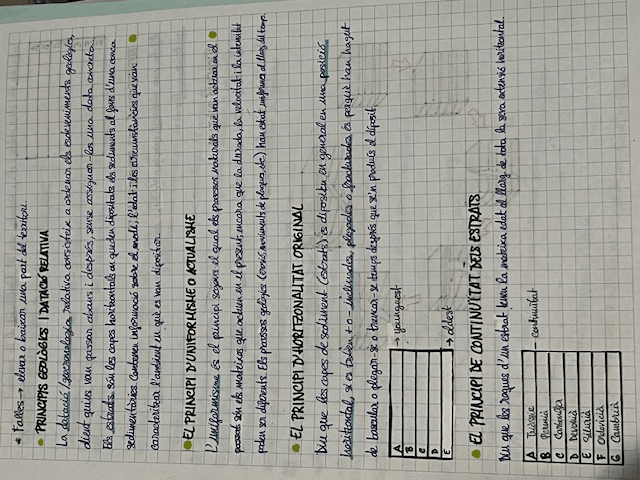 * Falles → elevar o baixar una part del territori.
• PRINCIPIS GEOLÒGICS I DATACIÓ RELATIVA
La datació/geocronologia relativa consisteix a ordenar els esdeveniments geològics,
dient quins van passar abans i després, sense assignar-los una data concreta.
Els estrats són les capes horitzontals on queden dipositats els sediments al fons d'una conca
sedimentària. Contenen informació sobre el medi, l'estat i les circumstàncies que van
caracteritzar l'ambient en què es van dipositar.
• EL PRINCIPI D'UNIFORMISME O ACTUALISME
L'uniformisme és el principi segons el qual els processos naturals que van actuar en el
passat són els mateixos que actuen en el present, encara que la durada, la velocitat i la intensitat
poden ser diferents. Els processos geològics (erosió, moviments de plaques, etc.), han estat uniformes al llarg del temps.
• EL PRINCIPI D'HORITZONALITAT ORIGINAL
Diu que les capes de sediment (estrats) es dipositen en general en una posició
horitzontal, si es troben + o - inclinades, plegades o fracturades és perquè han hagut
de bascular o plegar-se o trencar-se temps després que se'n produís el dipòsit.
A → youngest
B
C
D
E → oldest
• EL PRINCIPI DE CONTINUÏTAT DELS ESTRATS
Diu que les roques d'un estrat tenen la mateixa edat al llarg de tota la seva extensió horitzontal.
A Triàsic - continuïtat
B Permià
C Carbonífer
D Devonià
E Silurià
F Ordovicià
G Cambrià